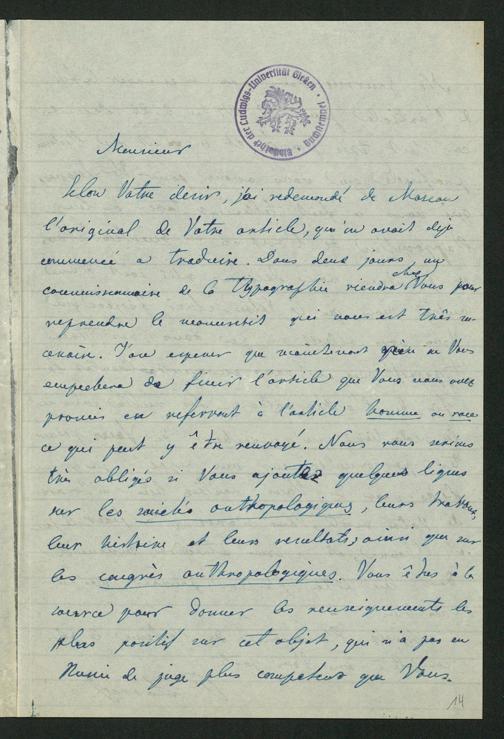 Monsieur
Selon Votre desir, j'ai redemandé de Moscou
l'original de Votre article, qu'on avait déjà
commencé a traduire. Dans deux jours un
commissionnaire de la typographie viendra chez Vous pour
reprendre le manuscrit qui nous est très ne-
cessaire. J'ose esperer que maintenant rien ne Vous
empechera de finir l'article que Vous nous avez
promis en referrant à l'article homme ou race
ce qui peut y être renvoyé. Nous vous serions
très obligés si Vous ajoutez quelques lignes
sur les sociétés anthropologiques, leurs travaux,
leur histoire et leurs resultats, ainsi que sur
les congrès anthropologiques. Vous êtes à la
source pour donner les renseignements les
plus positifs sur cet objet, qui n'a pas en
Russie de juge plus competent que Vous.
14